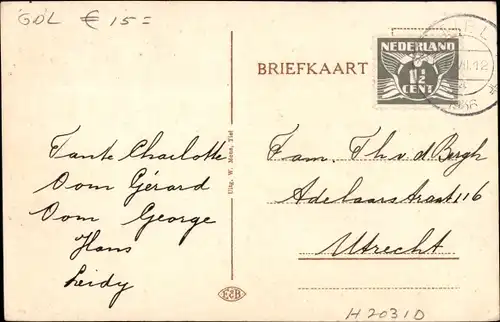 GDL € 15=
BRIEFKAART
NEDERLAND
1½
CENT
Tante Charlotte
Oom Gérard
Oom George
Hans
Leidy
Uitg. W. Mens, Tiel
Fam. Th v. d Bergh
Adelaarstraat 116
Utrecht
E&B
H2031D